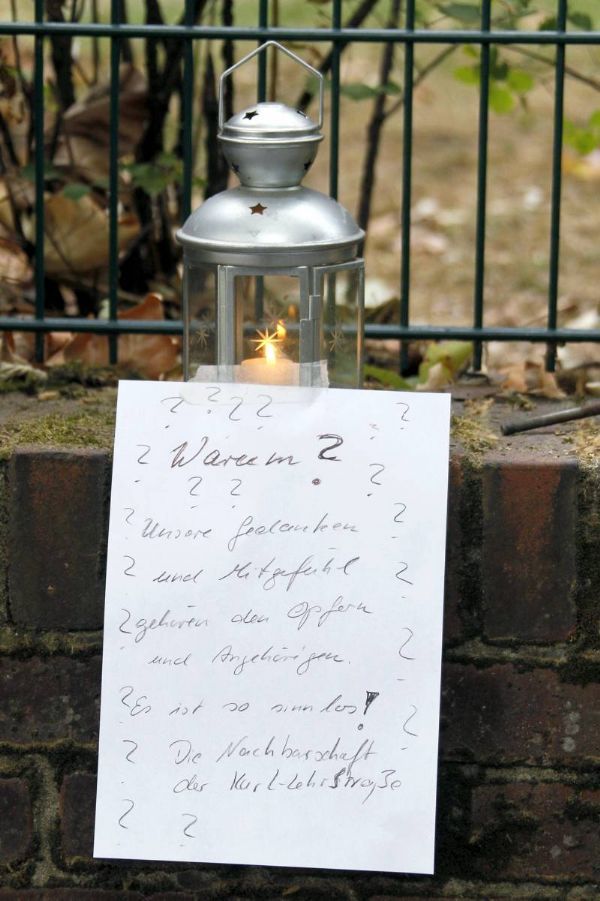 ? ? ? ? ?
? Warum? ?
? ?
? Unsere Gedanken ?
? und Mitgefühl ?
? gehören den Opfern
und Angehörigen. ?
? Es ist so sinnlos! ?
? Die Nachbarschaft
der Kurt-Lehrstraße
? ?